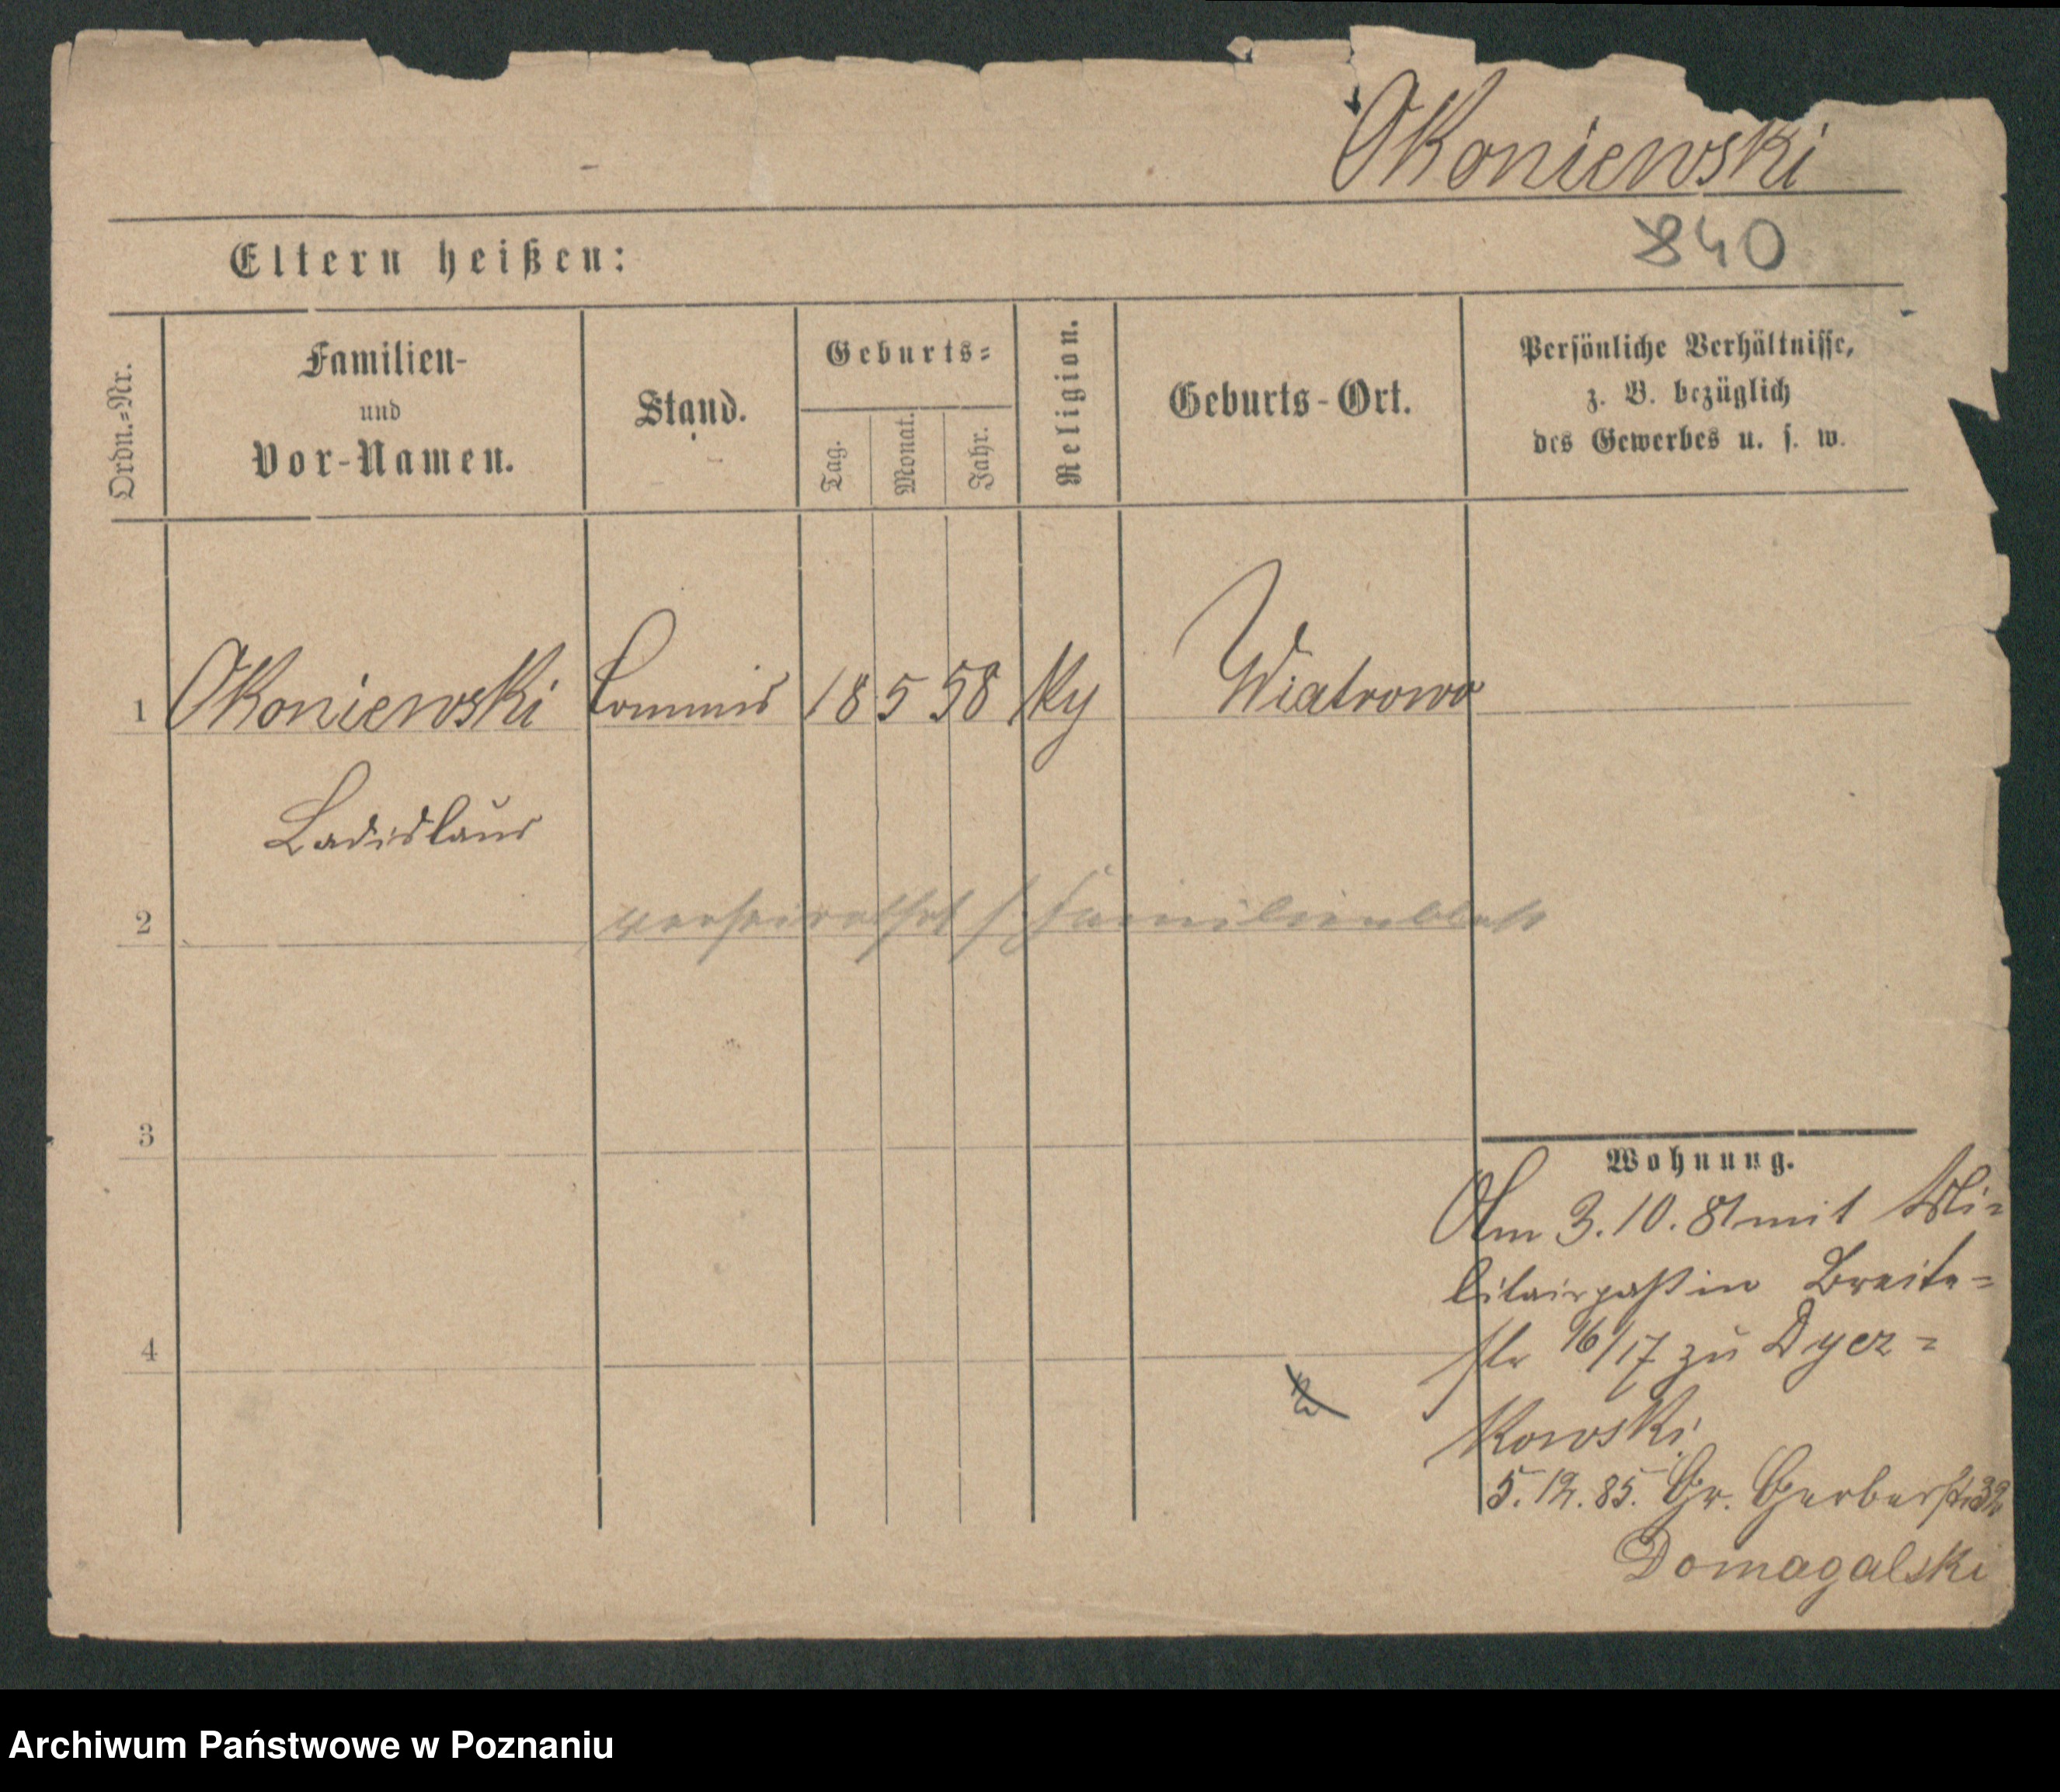 Okoniewski
840
Eltern heißen:
Ordn.=Nr.
Familien-
und
Vor-Namen.
Stand.
Geburts=
Tag.
Monat.
Jahr.
Religion.
Geburts-Ort.
Persönliche Verhältnisse,
z. B. bezüglich
des Gewerbes u. s. w.
1 Okoniewski Commis 18 5 58 Wiatrowo
Ladislaus
2 verheirathet s. Familienblatt
3
Wohnung.
Am 3.10.81 mit Mi=
litairpaß in Breite=
4
str 16/17 zu Dyer=
kowski
5.12.85. Gr. Gerberstr
Domagalski
Archiwum Państwowe w Poznaniu